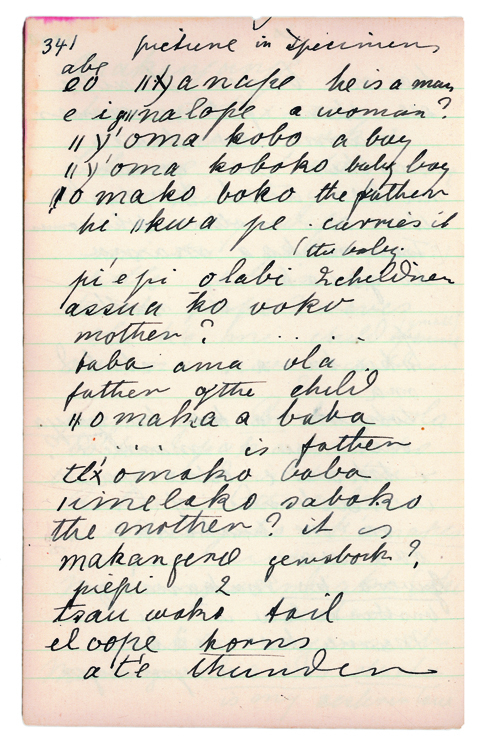 341 picture in specimens
abe
eo ||χ)anape he is a man
e ig||nalope a woman?
|| y'oma kobo a boy
|| y'oma koboko baby boy
omako boko the father
hi ||kwa pe . carries it
(the baby.
pi'epi olabi 2 children
assua ko voko
mother?
baba ama ola
father of the child
||o maka a baba
is father
omako baba
umelako saboko
the mother? it is
makangere gemsbock?,
piepi 2
tsau woko tail
el oope horns
a té thunder